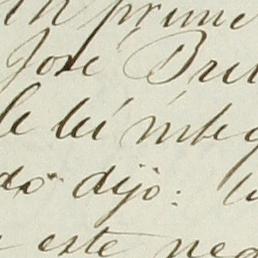 prime
José Brit
le leí integ
do dijo:
este neg